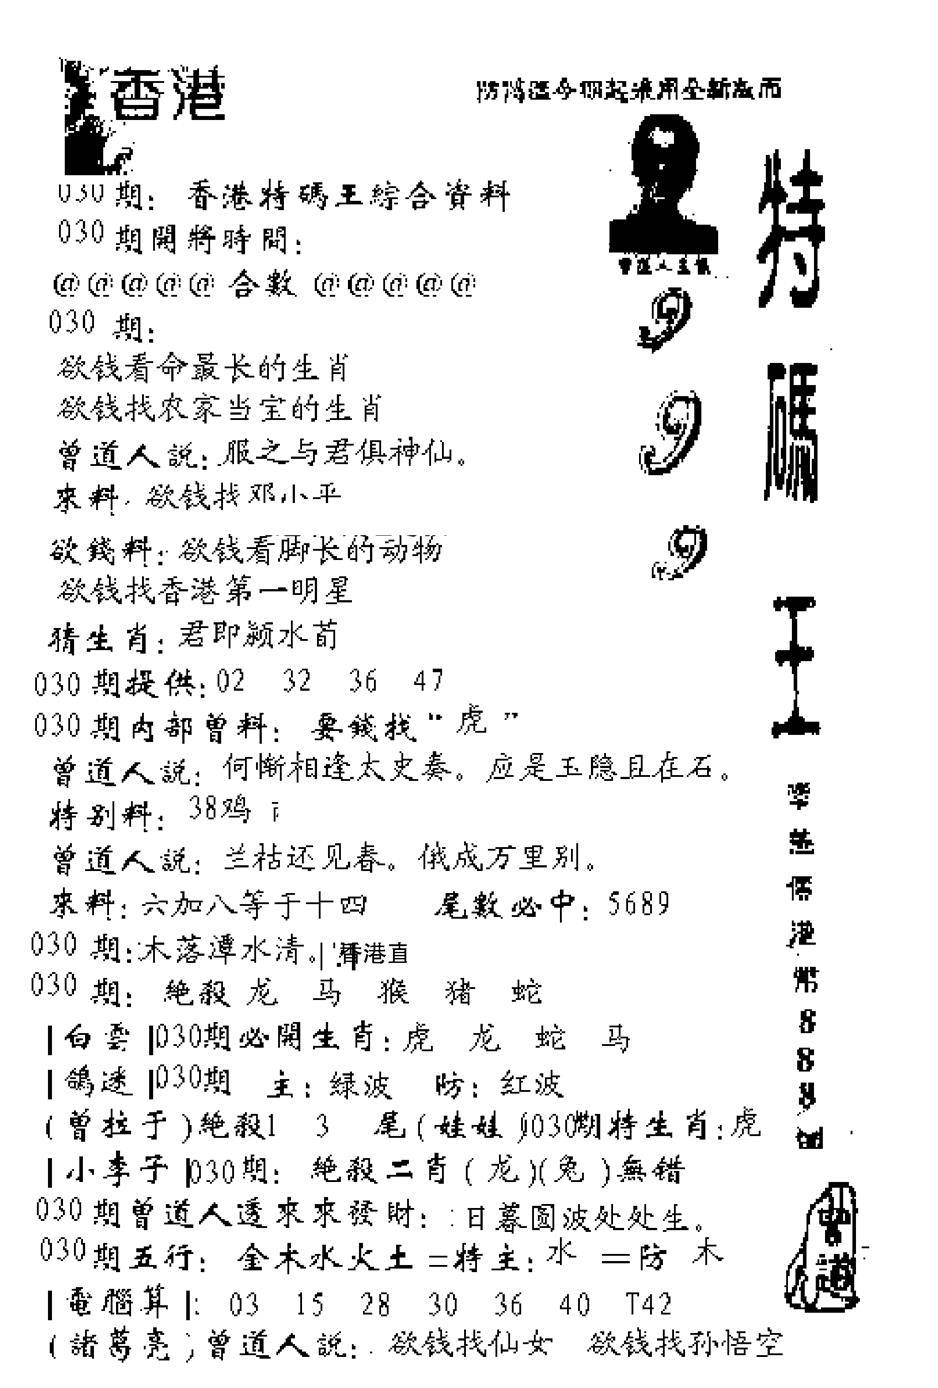 香港
防鴻溫今期起采用全新版面
030期: 香港特碼王綜合資料
030期開將時間:
@@@@@合數@@@@@
030 期:
欲钱看命最长的生肖
欲钱找农家当宝的生肖
曾道人説:服之与君俱神仙。
來料.欲钱找邓小平
欲錢料:欲钱看脚长的动物
欲钱找香港第一明星
猜生肖:君即颍水荀
030期提供:02 32 36 47
030期内部曾料: 要錢找“虎”
曾道人説:何惭相逢太史奏。应是玉隐且在石。
特别料: 38鸡
曾道人説:兰枯还见春。俄成万里别。
來料:六加八等于十四 尾數必中:5689
030期:木落潭水清。
港直
030期: 絶殺 龙 马 猴 猪 蛇
|白雲|030期必開生肖:虎 龙 蛇 马
|鴿迷|030期 主:绿波 防:红波
(曾拉于)絶殺1 3 尾(娃娃)030期特生肖:虎
|小李子|030期: 絶殺二肖(龙)(兔)無错
030期曾道人透來來發財:日暮圆波处处生。
030期五行: 金木水火土=特主:水 =防 木
|電腦算|: 03 15 28 30 36 40 T42
(諸葛亮)曾道人説:欲钱找仙女 欲钱找孙悟空
曾道人
9
9
9
特碼王
港幣888
曾道